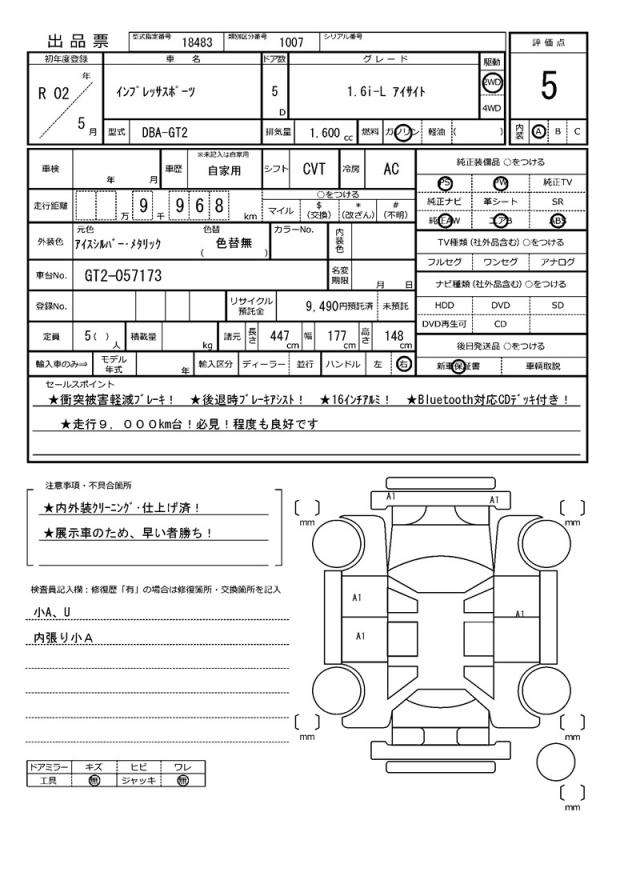 出品票 型式指定番号 18483 類別区分番号 1007 シリアル番号
初年度登録 車名 ドア数 グレード 駆動 評価点
R 02 年 5 月 インプレッサスポーツ 5 D 1.6i-L アイサイト 2WD 4WD 5
型式 DBA-GT2 排気量 1.600 cc 燃料 ガソリン 軽油 ( ) 内装 A B C
車検 年 月 車歴 ※未記入は自家用 自家用 シフト CVT 冷房 AC
走行距離 万 9 千 9 6 8 km ○をつける マイル $ (交換) * (改ざん) # (不明)
外装色 元色 アイスシルバー・メタリック 色替 ( 色替無 ) カラーNo. 内装色
車台No. GT2-057173 名変期限 月 日
登録No. リサイクル預託金 9,490円預託済 未預託
定員 5( ) 人 積載量 kg 諸元 長さ 447 cm 幅 177 cm 高さ 148 cm
輸入車のみ⇒ モデル年式 年 輸入区分 ディーラー 並行 ハンドル 左 右
純正装備品 ○をつける
PS PW 純正TV
純正ナビ 革シート SR
純正AW エアB ABS
TV種類 (社外品含む) ○をつける
フルセグ ワンセグ アナログ
ナビ種類 (社外品含む) ○をつける
HDD DVD SD
DVD再生可 CD
後日発送品 ○をつける
新車保証書 車輌取説
セールスポイント
★衝突被害軽減ブレーキ! ★後退時ブレーキアシスト! ★16インチアルミ! ★Bluetooth対応CDデッキ付き!
★走行9,000km台!必見!程度も良好です
注意事項・不具合箇所
★内外装クリーニング・仕上げ済!
★展示車のため、早い者勝ち!
検査員記入欄:修復歴「有」の場合は修復箇所・交換箇所を記入
小A、U
内張り小A
ドアミラー キズ ヒビ ワレ
工具 無 ジャッキ 無
A1 A1
[ ] mm [ ] mm
A1
A1
A1
[ ] mm [ ] mm
[ ] mm